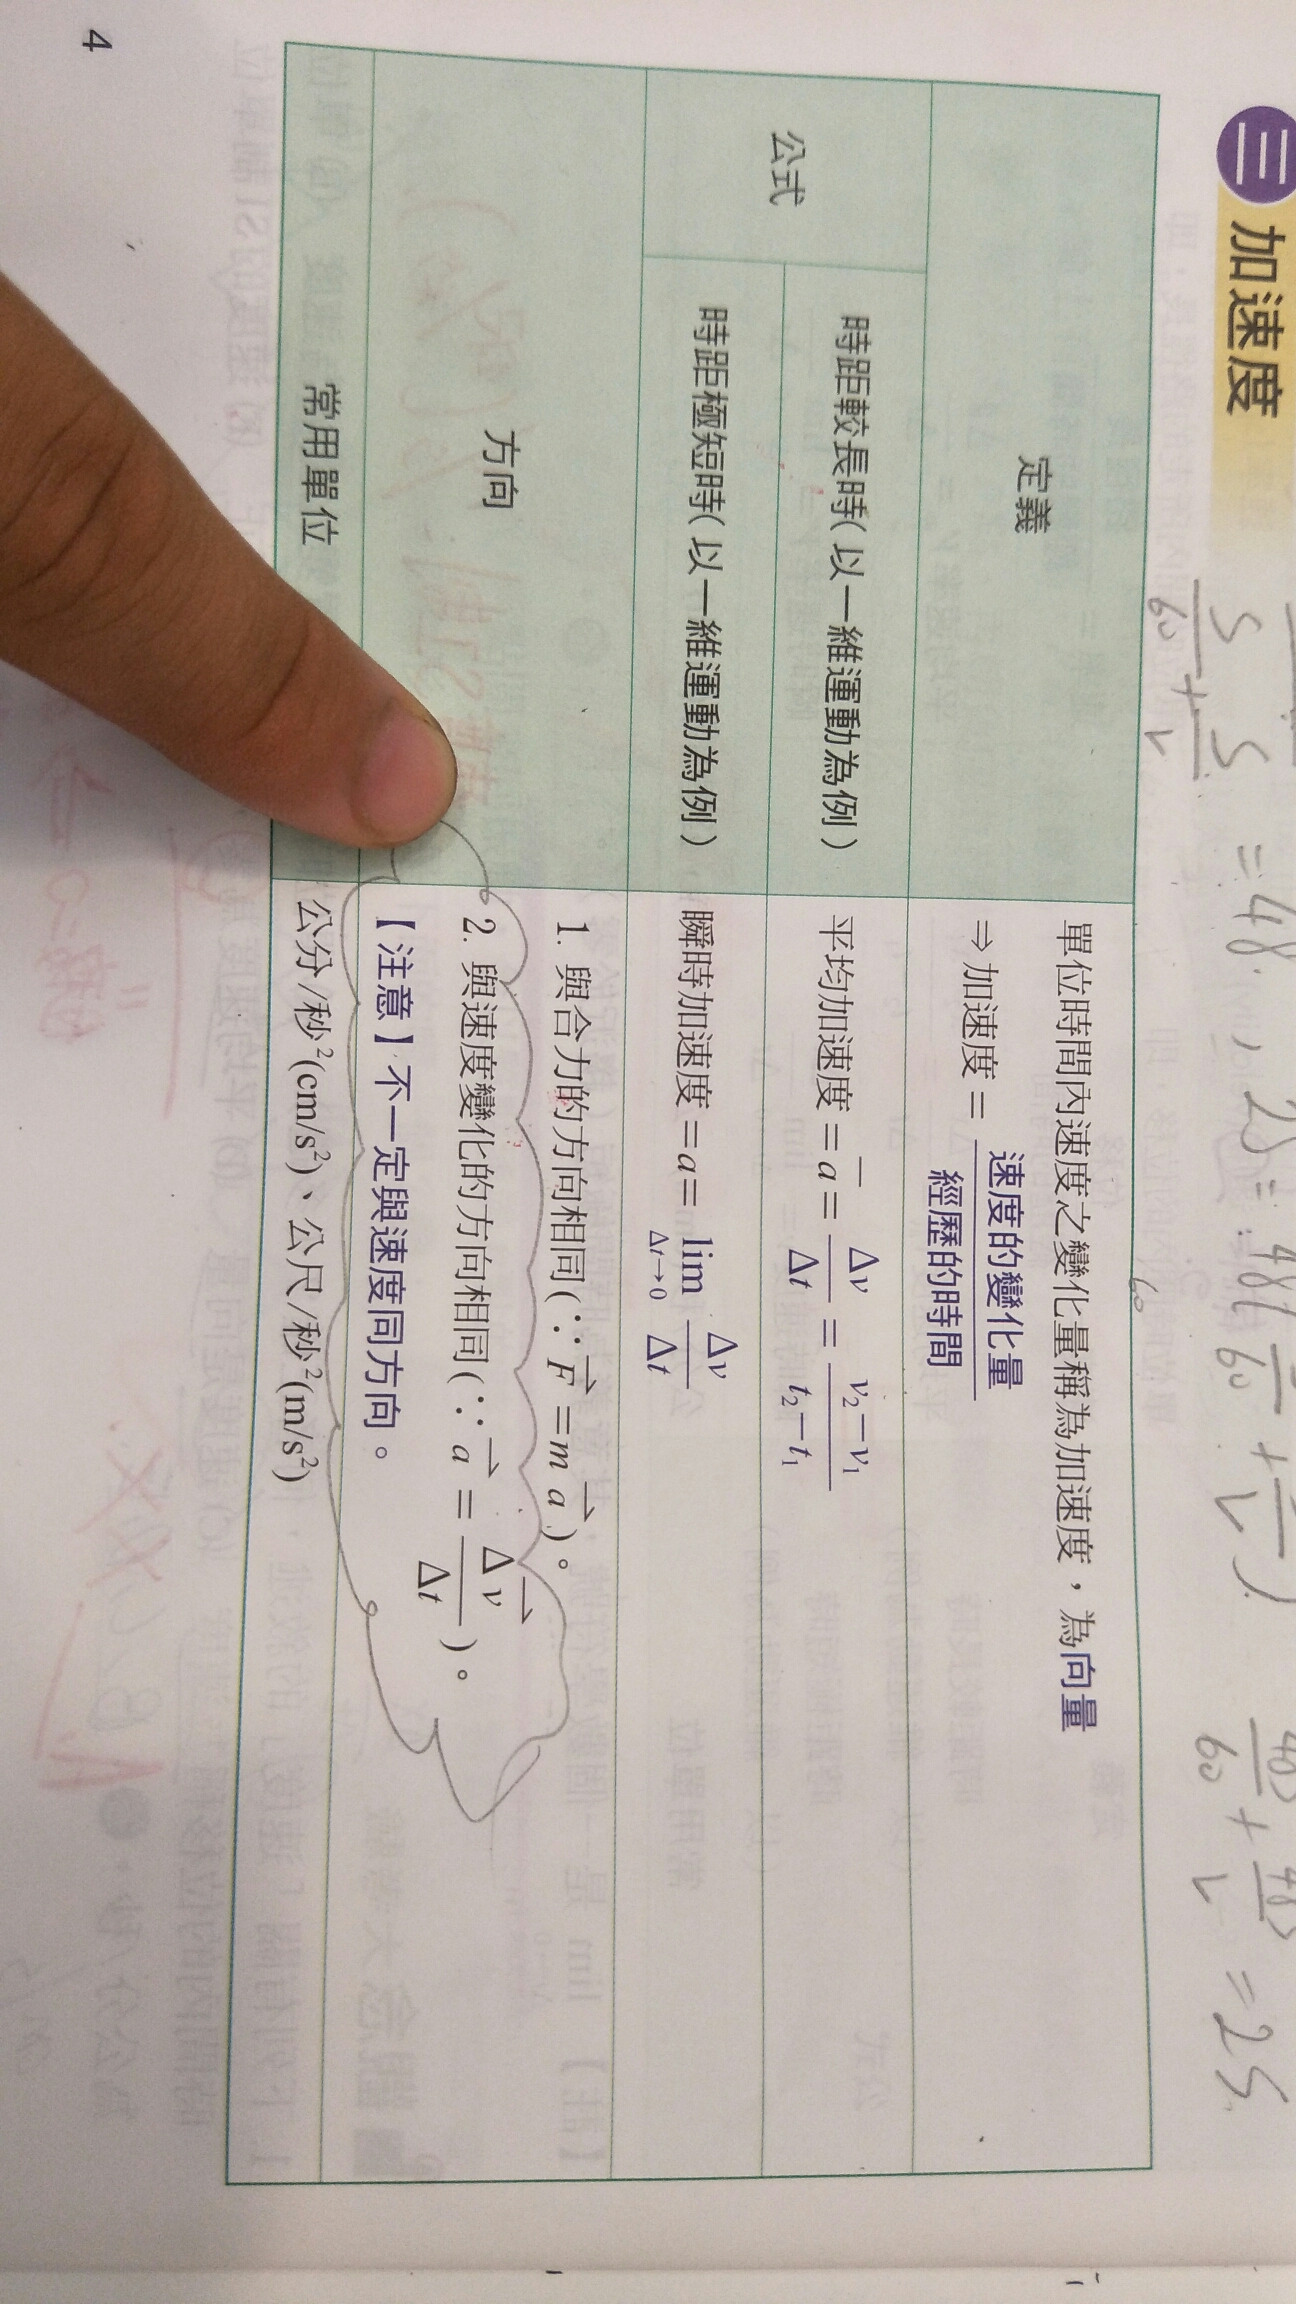 三 加速度
定義
單位時間內速度之變化量稱為加速度，為向量
⇒加速度＝速度的變化量/經歷的時間
公式
時距較長時（以一維運動為例）
平均加速度＝a̅＝Δv/Δt＝v₂－v₁/t₂－t₁
時距極短時（以一維運動為例）
瞬時加速度＝a＝lim Δt→0 Δv/Δt
方向
1. 與合力的方向相同（∵F⃗＝m a⃗）。
2. 與速度變化的方向相同（∵a⃗＝Δv⃗/Δt）。
【注意】不一定與速度同方向。
常用單位
公分/秒²(cm/s²)、公尺/秒²(m/s²)
4